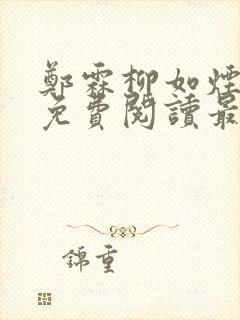 鄭霖柳如煙
免費閱讀最
錦重